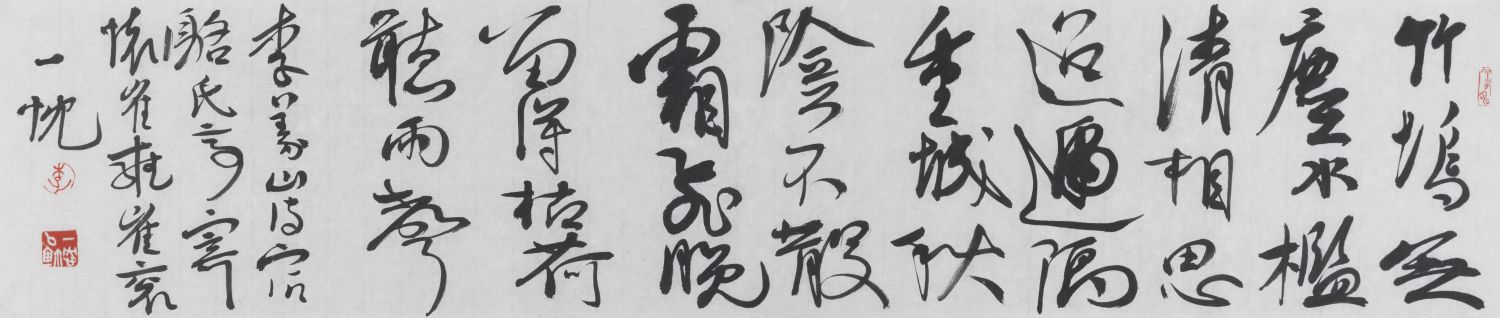 竹塢無
塵水檻
清相思
迢遞隔
重城秋
陰不散
霜飛晚
留得枯荷
聽雨聲
李義山詩宿
駱氏亭寄
懷崔雍崔袞
一忱
李